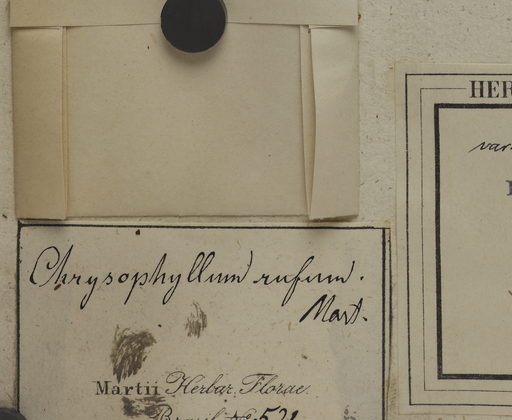 Chrysophyllum rufum.
Mart.
Martii Herbar. Florae
Brasil. No. 531
HER
var.